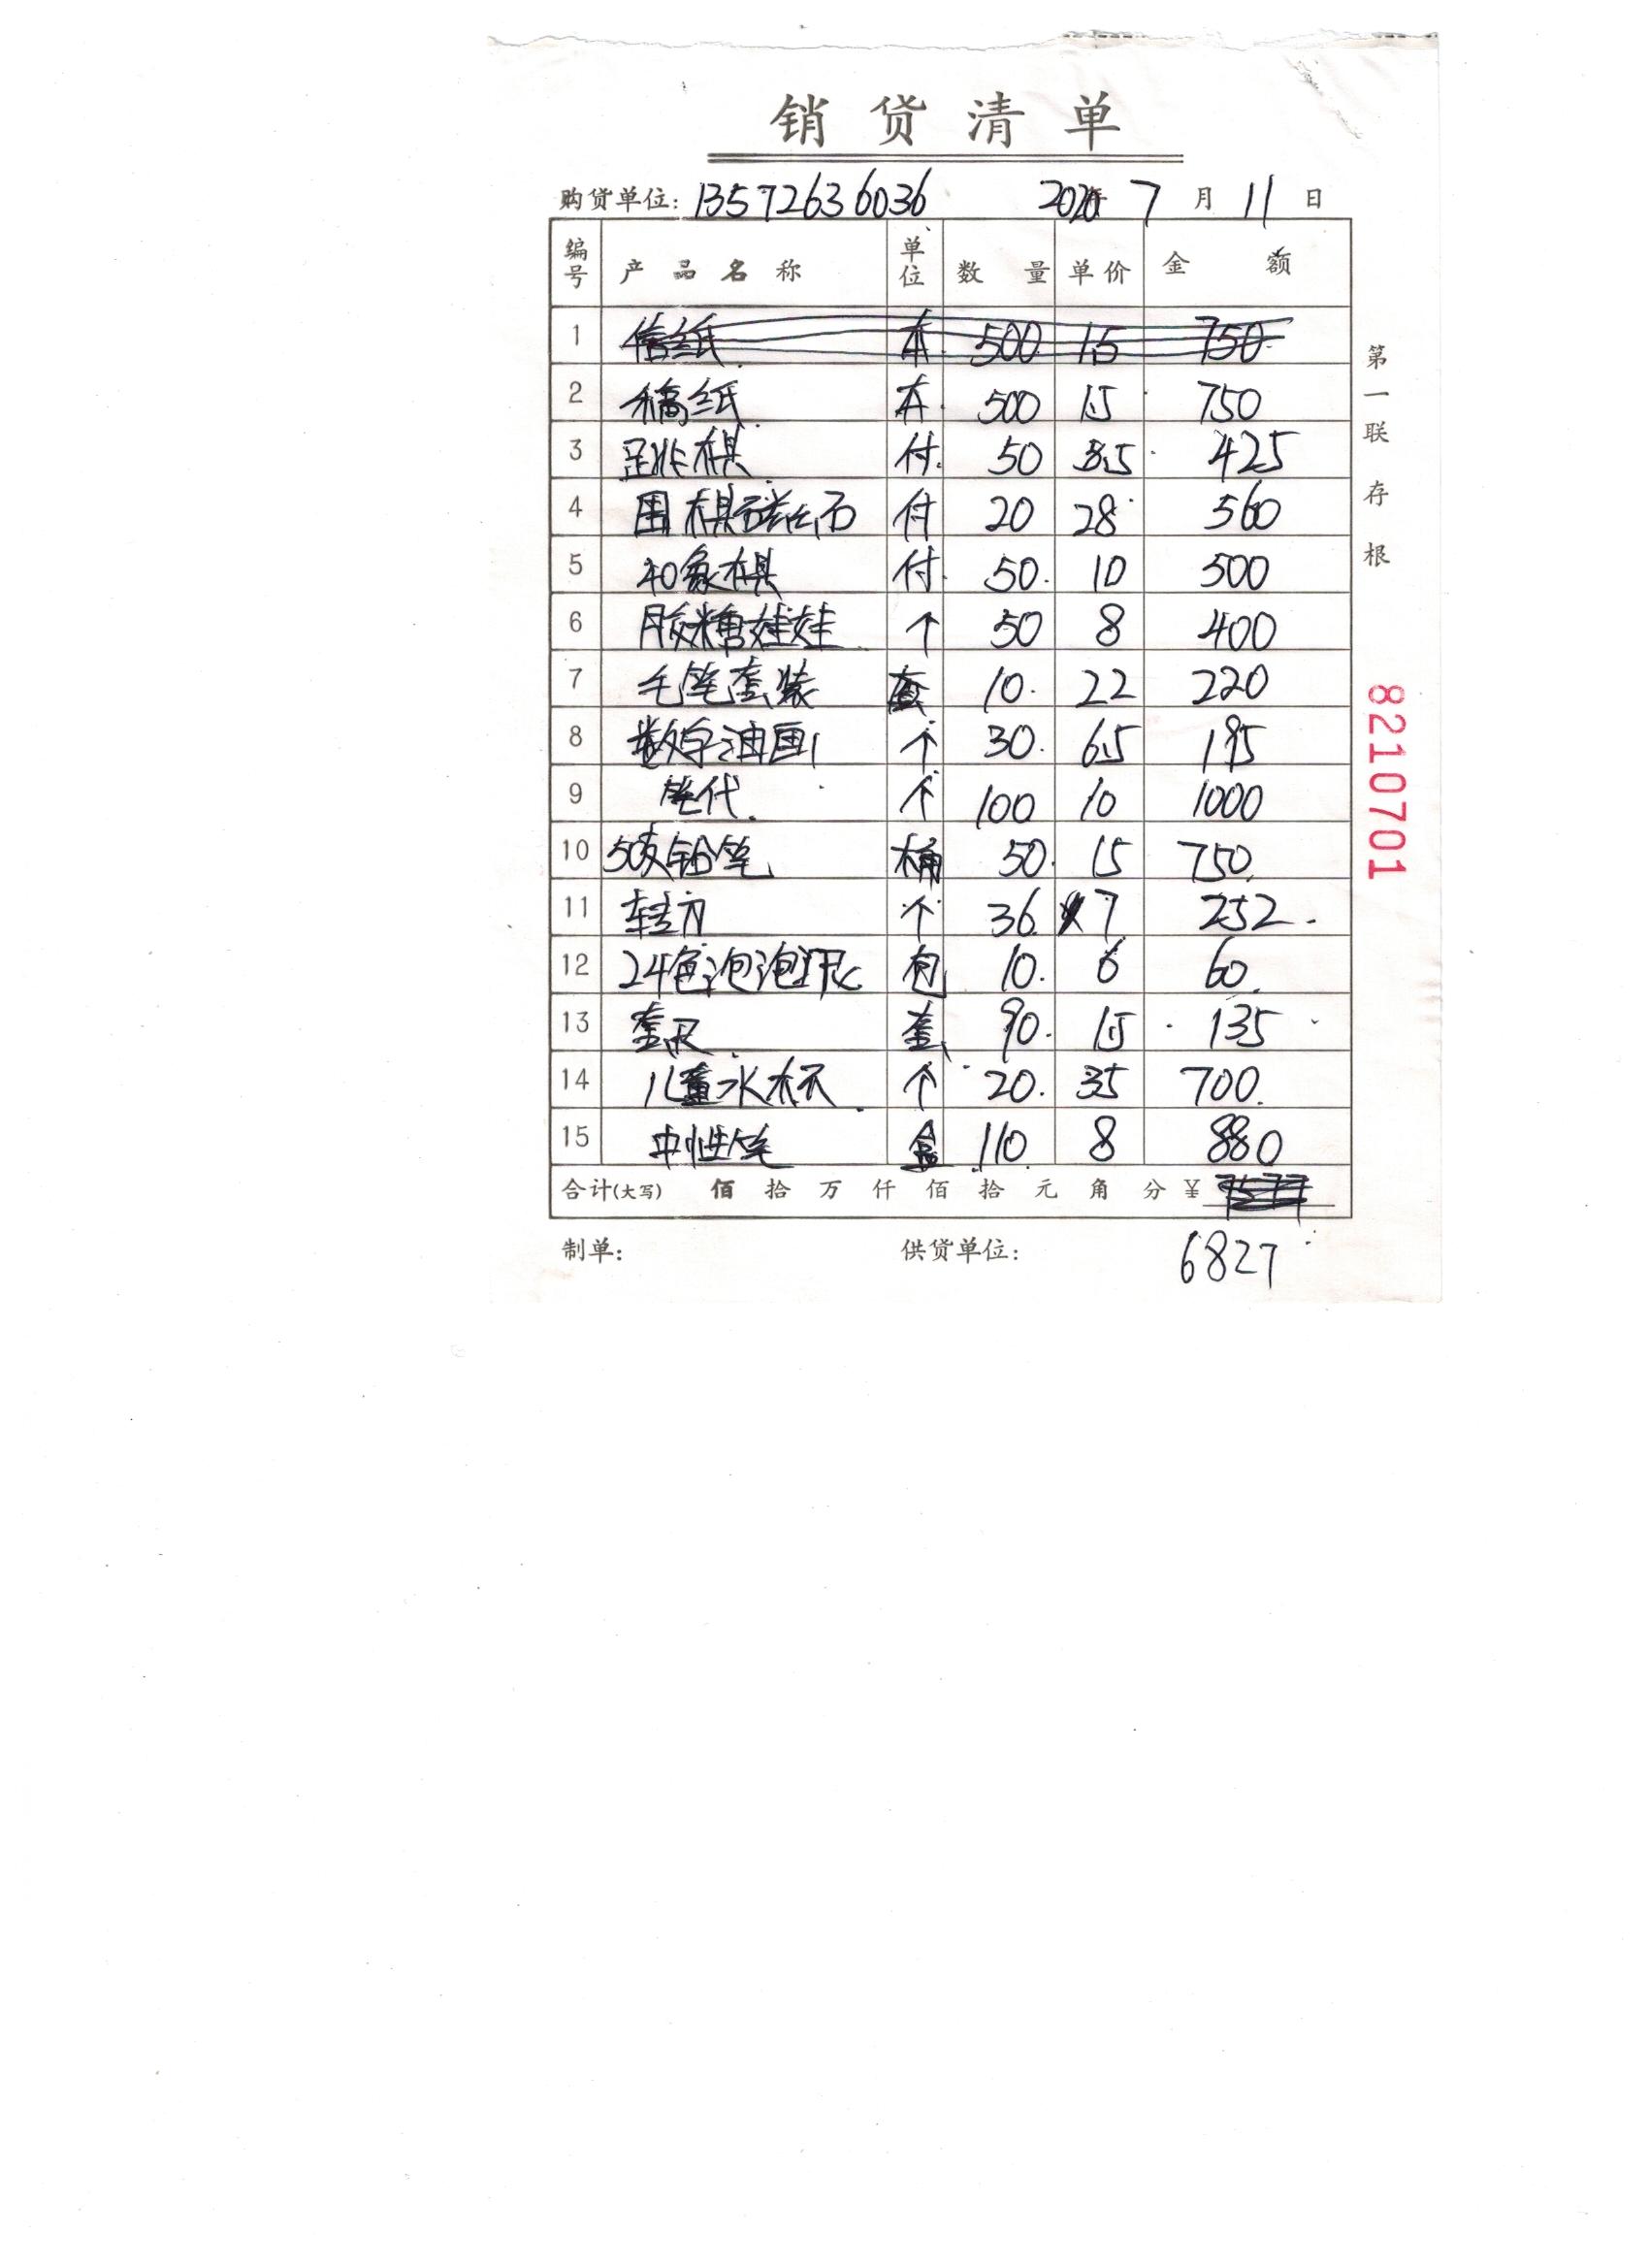 销货清单
购货单位: 13572636036 2020年 7 月 11 日
编号 产品名称 单位 数量 单价 金额
1 信纸 本 500 1.5 750
2 稿纸 本 500 1.5 750
3 跳棋 付 50 8.5 425
4 围棋磁石 付 20 28 560
5 40象棋 付 50 10 500
6 胶糖娃娃 个 50 8 400
7 毛笔套装 套 10 22 220
8 数字油画 个 30 6.5 195
9 笔代 个 100 10 1000
10 50支铅笔 桶 50 15 750
11 转刀 个 36 7 252
12 24色泡泡泥 包 10 6 60
13 套尺 套 90 1.5 135
14 儿童水杯 个 20 35 700
15 中性笔 盒 110 8 880
合计(大写) 佰 拾 万 仟 佰 拾 元 角 分 ¥ 7577
制单: 供货单位: 6827
第一联 存根
8210701